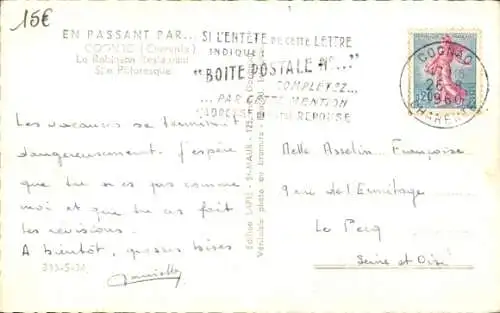 15€
EN PASSANT PAR...
COGNAC (Charente)
Le Robinson Restaurant
Site Pittoresque
SI L'ENTÊTE DE CETTE LETTRE
INDIQUE :
"BOITE POSTALE N°..."
COMPLÉTEZ...
...PAR CETTE MENTION
L'ADRESSE RÉPONSE
COGNAC
26
1960
CHARENTE
Les vacances se terminent
dangereusement. J'espère
que tu n'es pas comme
moi et que tu as fait
les révisions.
A bientôt, grosses bises
Danielle
Melle Asselin Françoise
9 rue de l'Ermitage
Le Pecq
Seine et Oise
Editions LAPIE - St-MAUR
Véritable photo au bromure